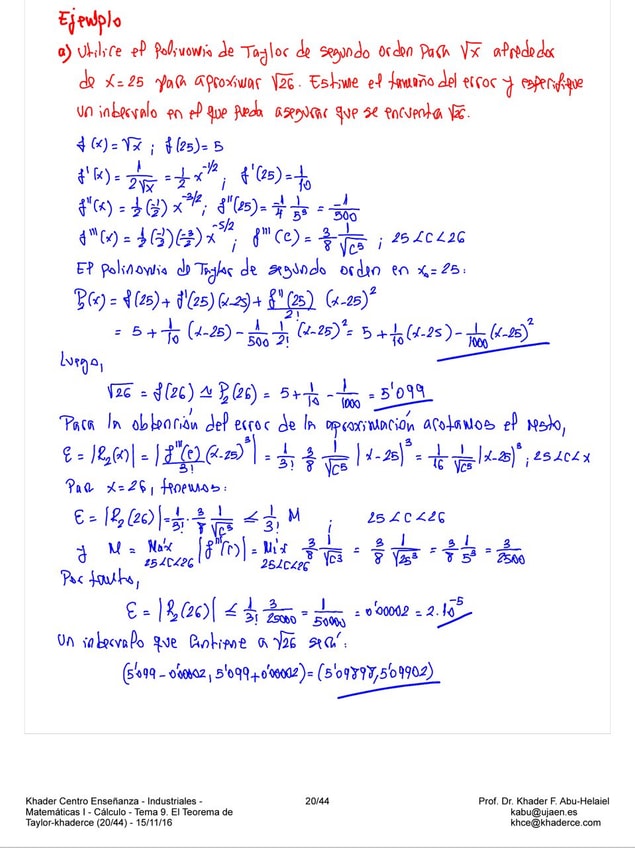 Ejemplo
a) Utilice el polinomio de Taylor de segundo orden para √x alrededor
de x=25 para aproximar √26. Estime el tamaño del error y especifique
un intervalo en el que pueda asegurar que se encuentra √26.
f(x)=√x ; f(25)=5
f'(x)= 1/(2√x) = 1/2 x^(-1/2) ; f'(25)= 1/10
f''(x)= 1/2 (-1/2) x^(-3/2) ; f''(25)= -1/4 1/5³ = -1/500
f'''(x)= 1/2 (-1/2)(-3/2) x^(-5/2) ; f'''(c)= 3/8 1/√c⁵ ; 25<c<26
El polinomio de Taylor de segundo orden en x₀=25:
P₂(x)= f(25)+f'(25)(x-25)+ f''(25)/2! (x-25)²
= 5+ 1/10 (x-25) - 1/500 1/2! (x-25)² = 5+ 1/10 (x-25) - 1/1000 (x-25)²
Luego,
√26 = f(26) ≃ P₂(26) = 5+ 1/10 - 1/1000 = 5'099
Para la obtención del error de la aproximación acotamos el resto,
E=|R₂(x)|=| f'''(c)/3! (x-25)³ |= 1/3! 3/8 1/√c⁵ |x-25|³ = 1/16 1/√c⁵ |x-25|³ ; 25<c<x
Para x=26, tenemos:
E=|R₂(26)|= 1/3! · 3/8 1/√c⁵ ≤ 1/3! M ; 25<c<26
y M = Máx 25<c<26 |f'''(c)| = Máx 25<c<26 3/8 1/√c³ = 3/8 1/√25³ = 3/8 1/5³ = 3/2500
Por tanto,
E=|R₂(26)| ≤ 1/3! 3/25000 = 1/50000 = 0'00002 = 2·10⁻⁵
Un intervalo que contiene a √26 será:
(5'099-0'00002, 5'099+0'00002)=(5'09898, 5'09902)
Khader Centro Enseñanza - Industriales -
Matemáticas I - Cálculo - Tema 9. El Teorema de
Taylor-khaderce (20/44) - 15/11/16
20/44
Prof. Dr. Khader F. Abu-Helaiel
kabu@ujaen.es
khce@khaderce.com